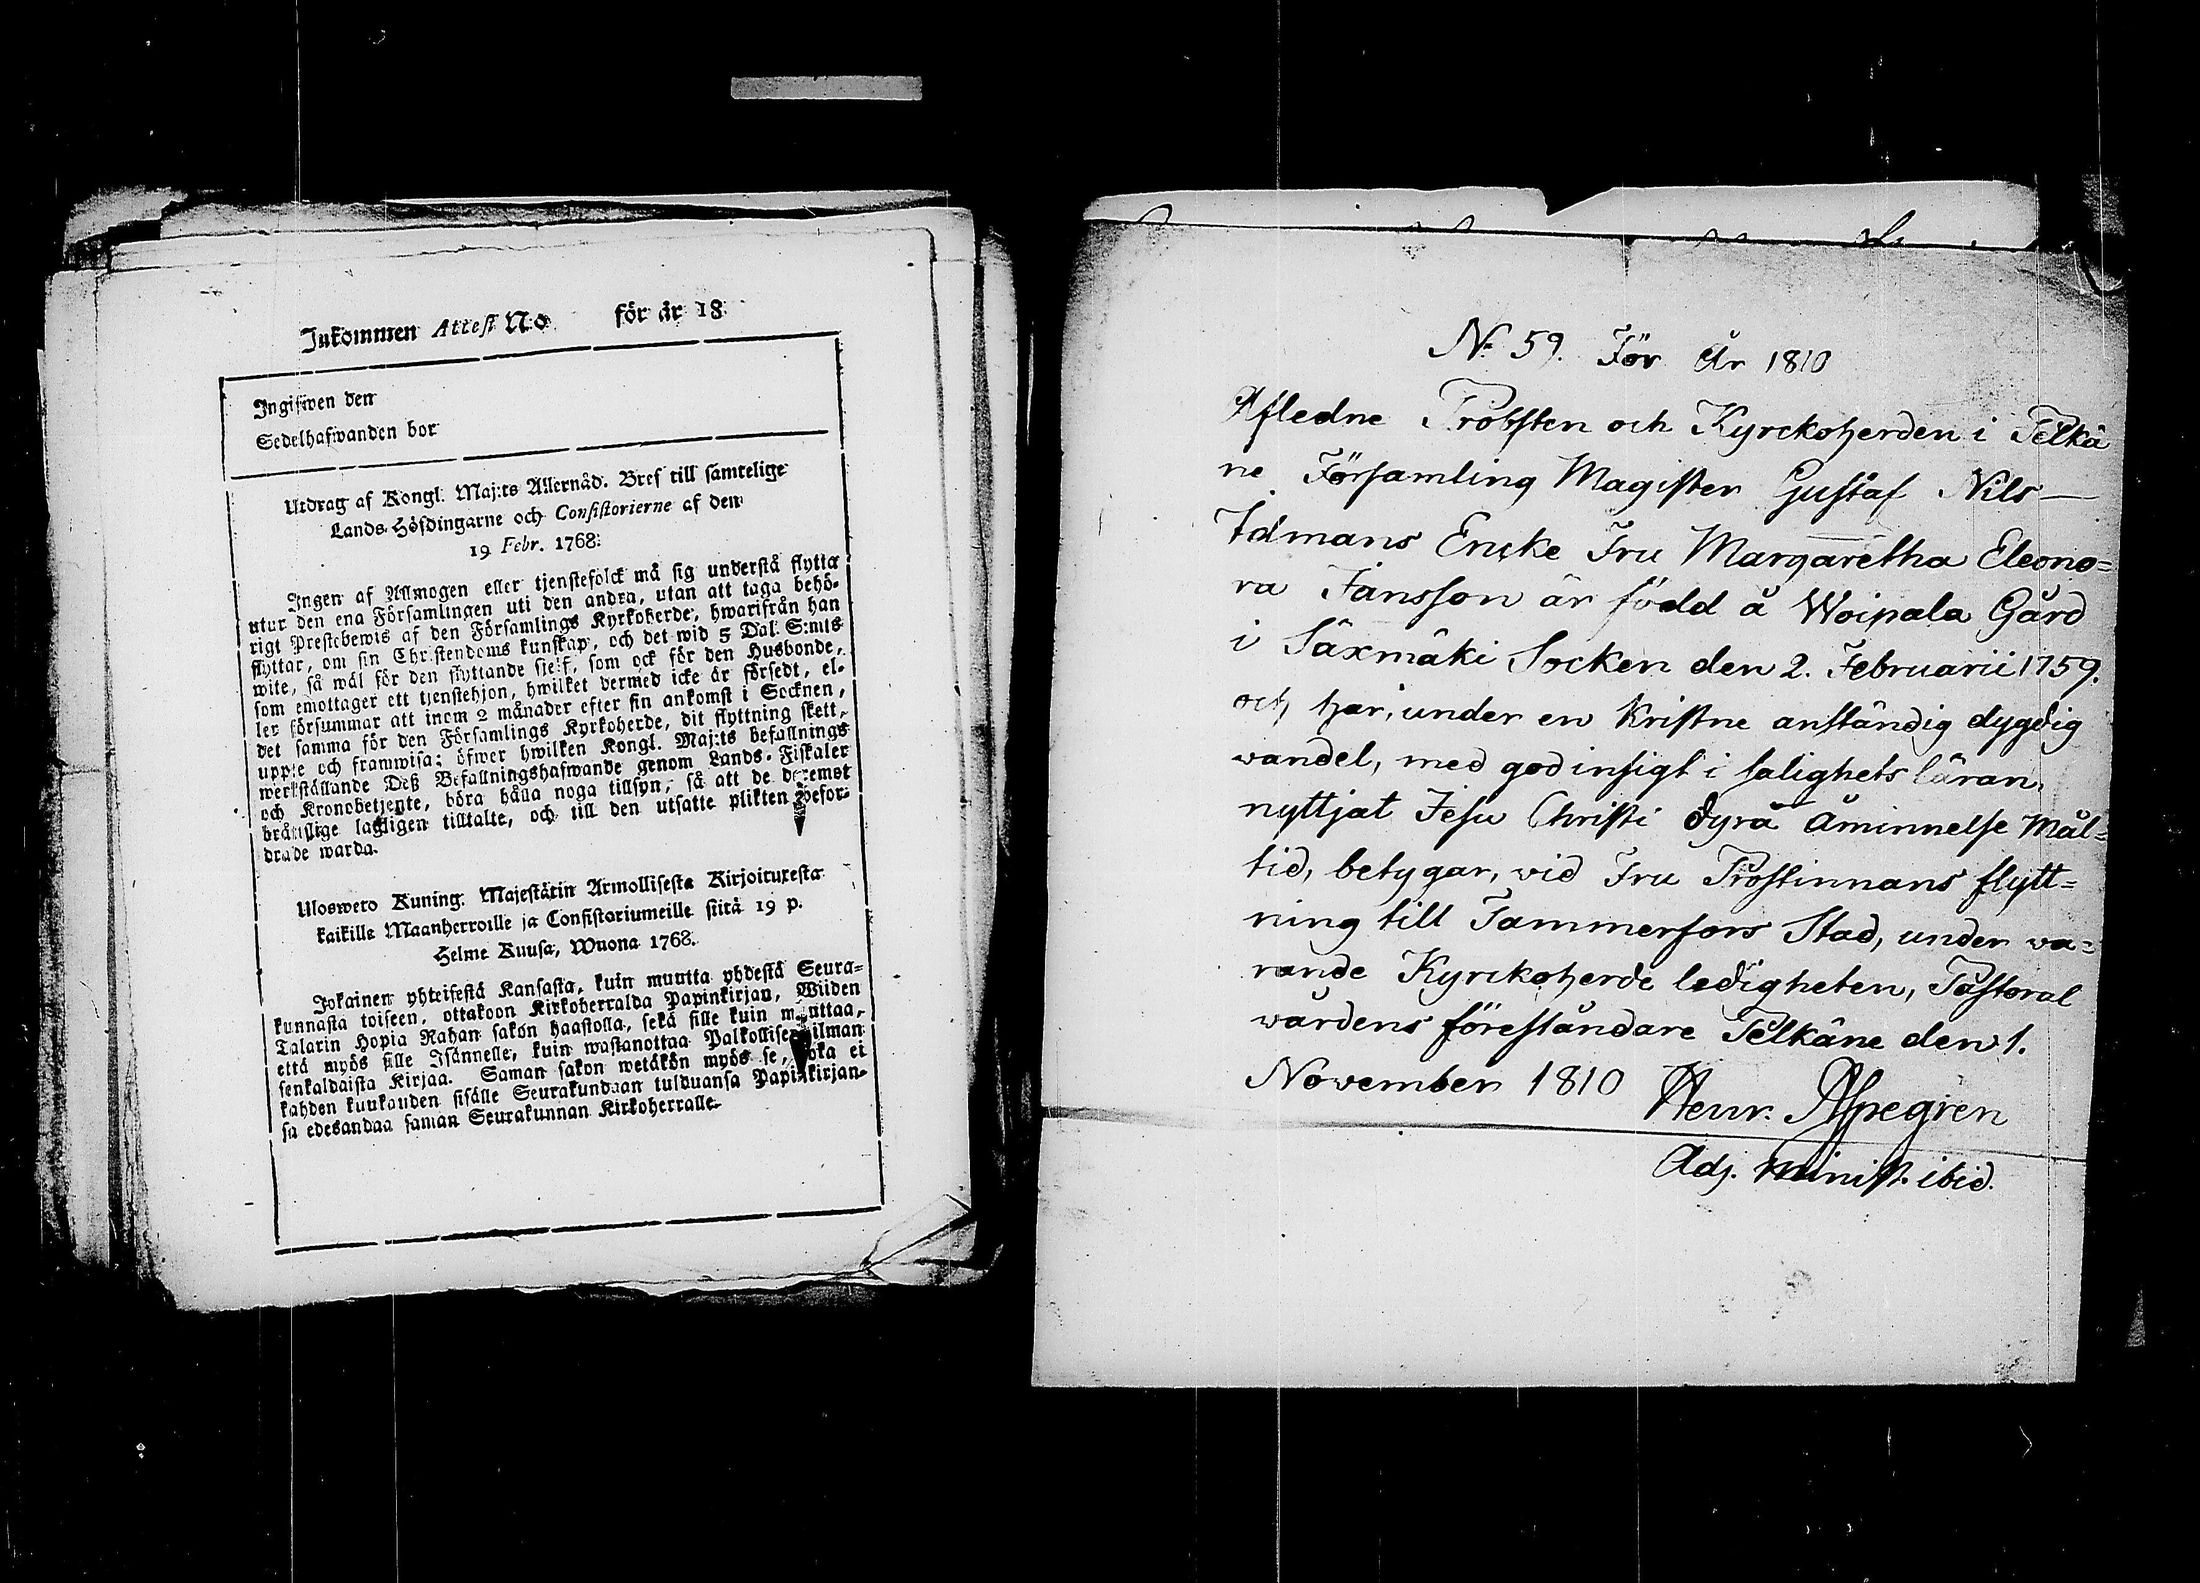 Inkommen Attest No för år 18
Ingifwen den
Sedelhafwanden bor
Utdrag af Kongl. Maj:ts Allernåd. Bref till samtelige
Lands-Höfdingarne och Consistorierne af den
19 Febr. 1768.
Ingen af Allmogen eller tjenstefolck må sig understå flytta
utur den ena Församlingen uti den andra, utan att taga behö-
rigt Prestebewis af den Församlings Kyrkoherde, hwarifrån han
flyttar, om sin Christendoms kunskap, och det wid 5 Dal. S:mts
wite, så wäl för den flyttande sjelf, som ock för den Husbonde,
som emottager ett tjenstehjon, hwilket dermed icke är försedt, el-
ler försummar att inom 2 månader efter sin ankomst i Socknen,
det samma för den Församlings Kyrkoherde, dit flyttning skett,
uppte och framwisa; öfwer hwilken Kongl. Maj:ts befallnings
werkställande Deß Befallningshafwande genom Lands-Fiskaler
och Kronobetjente, böra hålla noga tillsyn, så att de deremot
bråttslige lagligen tilltalte, och till den utsatte plikten befor-
drade warda.
Uloswero Kuning. Majestätin Armollisesta Kirjoituxesta
kaikille Maanherroille ja Consistoriumeille siitä 19 p.
Helme Kuusa, Wuona 1768.
Jokainen yhteisestä Kansasta, kuin muutta yhdestä Seura-
kunnasta toiseen, ottakoon Kirkoherralda Papinkirjan, Wiiden
Talarin Hopia Rahan sakon haastolla, sekä sille kuin muuttaa,
että myös sille Isännelle, kuin wastanottaa Palkollisen ilman
senkaldaista Kirjaa. Saman sakon wetäkön myös se, joka ei
kahden kuukauden sisälle Seurakundaan tulduansa Papinkirjan-
sa edesandaa saman Seurakunnan Kirkoherralle.
No 59. För År 1810
Afledne Probsten och Kyrckoherden i Pelkä
ne Församling Magister Gustaf Nils
Idmans Encke Fru Margaretha Eleono=
ra Jansson är född å Woipala Gård
i Säxmäki Socken den 2. Februarii 1759.
och har, under en Kristne anständig dygdig
vandel, med god insigt i salighets läran,
nyttjat Jesu Christi dyra Åminnelse Mål=
tid, betygar, vid Fru Prostinnans flytt=
ning till Tammerfors Stad, under va=
rande Kyrckoherde ledigheten, Pastoral
vårdens föreståndare Pelkäne den 1.
November 1810 Henr. Aspegren
Adj. Minist. ibid.